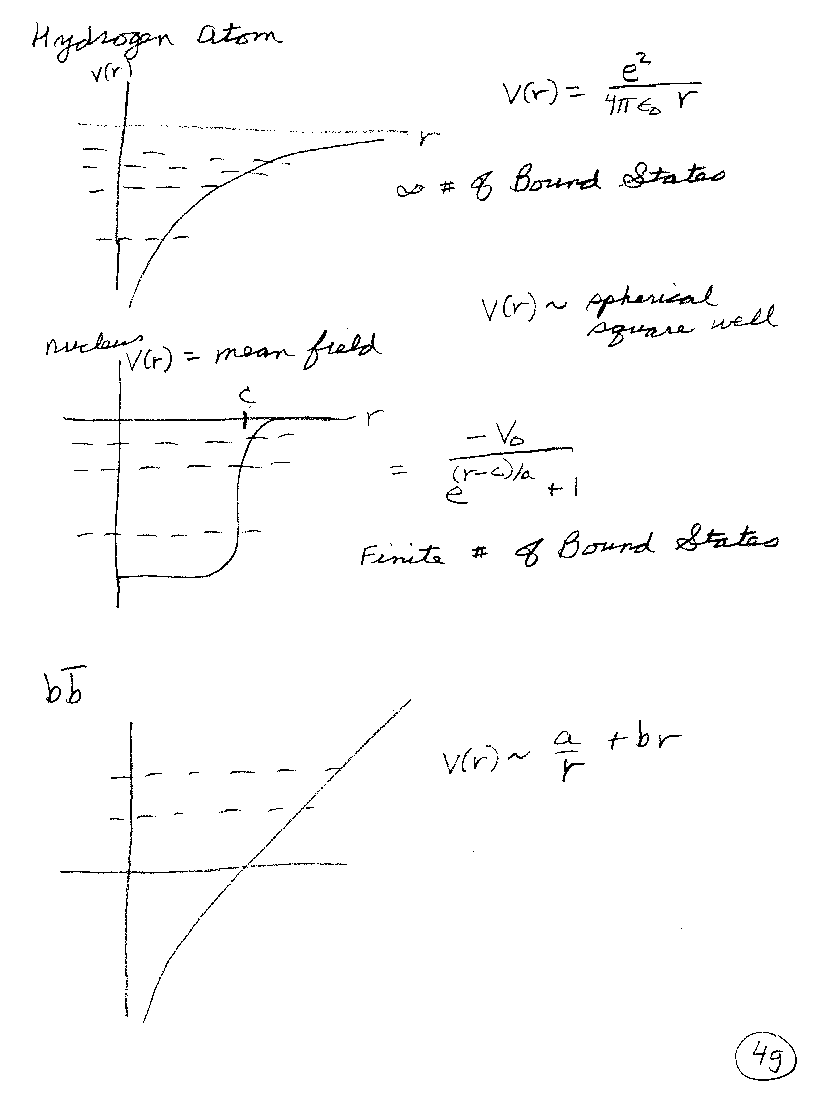 Hydrogen atom
V(r)
V(r) = e² / 4πε₀ r
r
∞ # of Bound States
V(r) ~ spherical
square well
nucleus
V(r) = mean field
c
r
= -V₀ / e^((r-c)/a) + 1
Finite # of Bound States
bb̅
V(r) ~ a/r + br
49